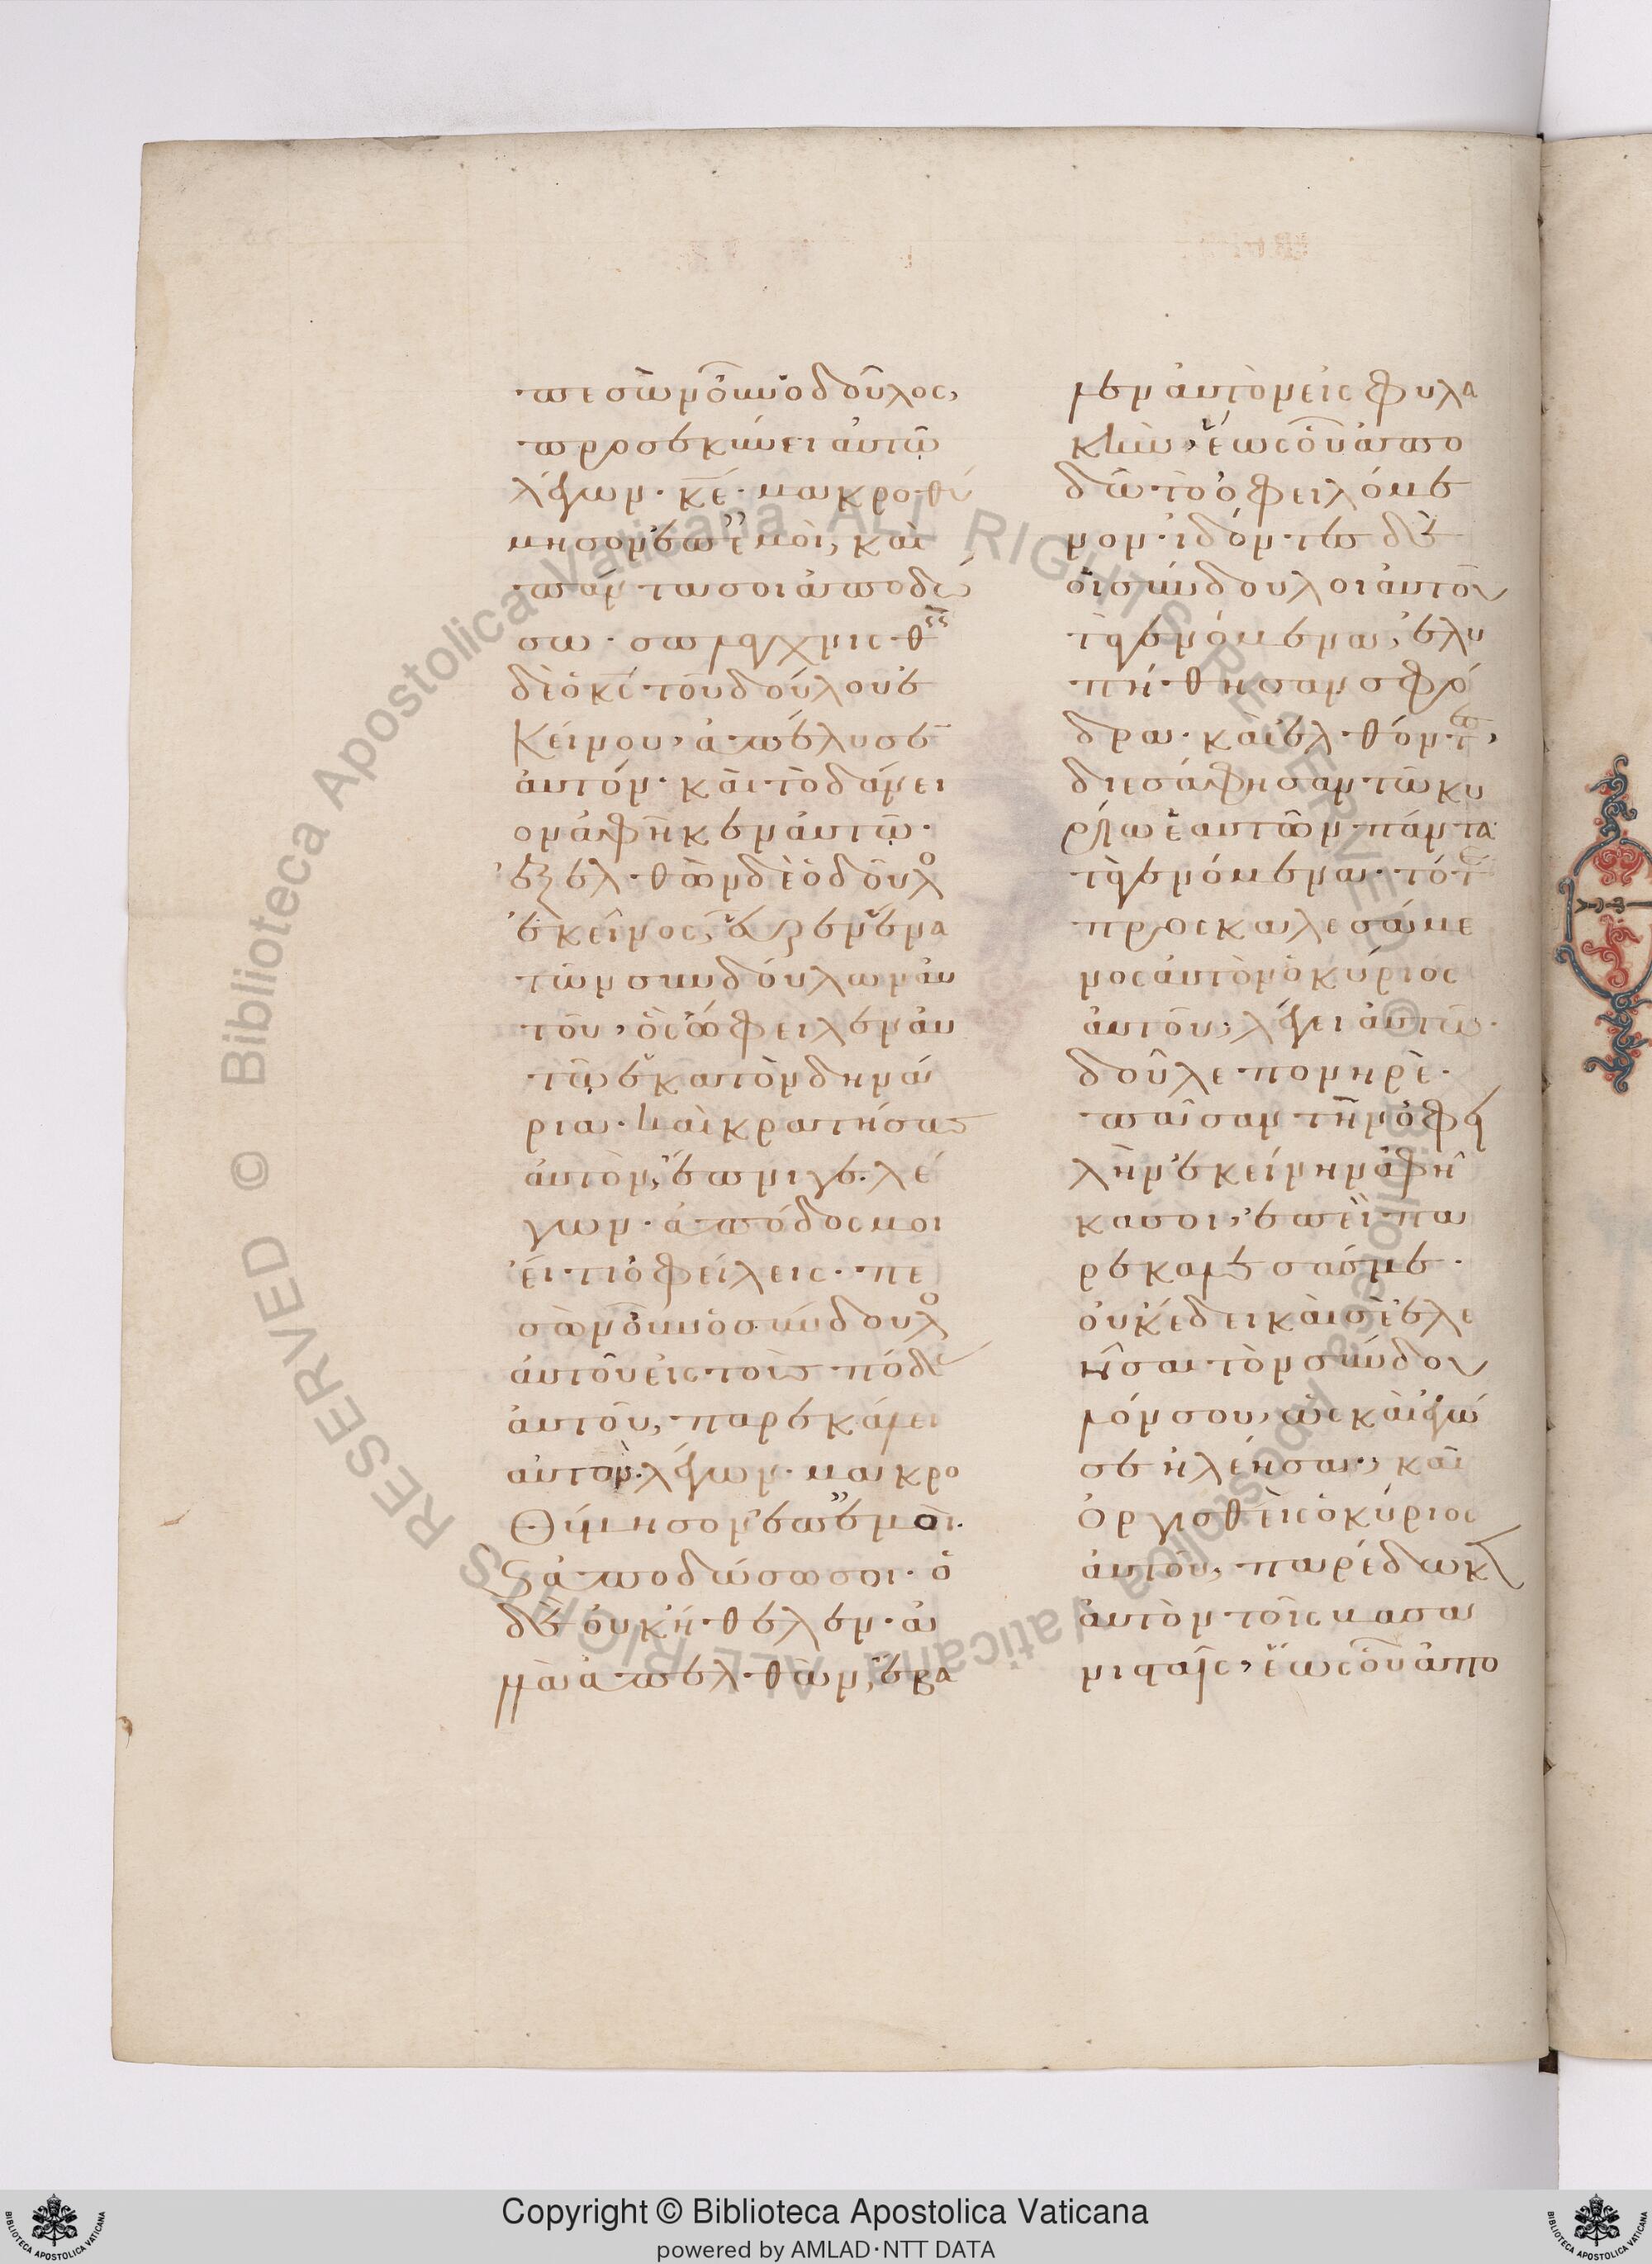 πεσὼν οὖν ὁ δοῦλος,
προσεκύνει αὐτῶ
λέγων· κ̅ε̅· μακροθύ
μησον ἐπ ἐμοὶ, καὶ
πάντα σοι ἀποδώ
σω· σπλαγχνισθεὶς
δὲ ὁ κ̅ς̅ τοῦ δούλου ἐ
κείνου, ἀπέλυσεν
αὐτόν· καὶ τὸ δάνει
ον ἀφῆκεν αὐτῶ·
ἐξελθὼν δὲ ὁ δοῦλο
ἐκεῖνος, εὗρεν ἕνα
τῶν συνδούλων αὐ
τοῦ, ὃς ὤφειλεν αὐ
τῶ ἑκατὸν δηνά
ρια· καὶ κρατήσας
αὐτὸν, ἔπνιγε λέ
γων· ἀπόδος μοι
εἴ τι ὀφείλεις· πε
σὼν οὖν ὁ σύνδουλο
αὐτοῦ εἰς τοὺς πόδας
αὐτοῦ, παρεκάλει
αὐτὸν λέγων· μακρο
θύμησον ἐπ ἐμοὶ·
ϗ ἀποδώσω σοι· ὁ
δὲ οὐκ ἤθελεν· ἀλ
λὰ ἀπελθὼν, ἔβα
λεν αὐτὸν εἰς φυλα
κὴν, ἕως οὗ ἀπο
δῶ τὸ ὀφειλόμε
νον· ἰδόντες δὲ
οἱ σύνδουλοι αὐτοῦ
τὰ γενόμενα, ἐλυ
πήθησαν σφό
δρα· καὶ ἐλθόντες,
διεσάφησαν τῶ κυ
ρίω ἑαυτῶν πάντα
τὰ γενόμενα· τότε
προσκαλεσάμε
νος αὐτὸν ὁ κύριος
αὐτοῦ, λέγει αὐτῶ·
δοῦλε πονηρὲ·
πᾶσαν τὴν ὀφει
λὴν ἐκείνην ἀφῆ
κα σοι, ἐπεὶ πα
ρεκάλεσάς με·
οὐκ ἔδει καὶ σὲ ἐλε
ῆσαι τὸν σύνδου
λόν σου, ὡς καὶ ἐγώ
σε ἠλέησα, καὶ
ὀργισθεὶς ὁ κύριος
αὐτοῦ, παρέδωκεν
αὐτὸν τοῖς βασα
νισταῖς, ἕως οὗ ἀπο
Copyright © Biblioteca Apostolica Vaticana
powered by AMLAD·NTT DATA